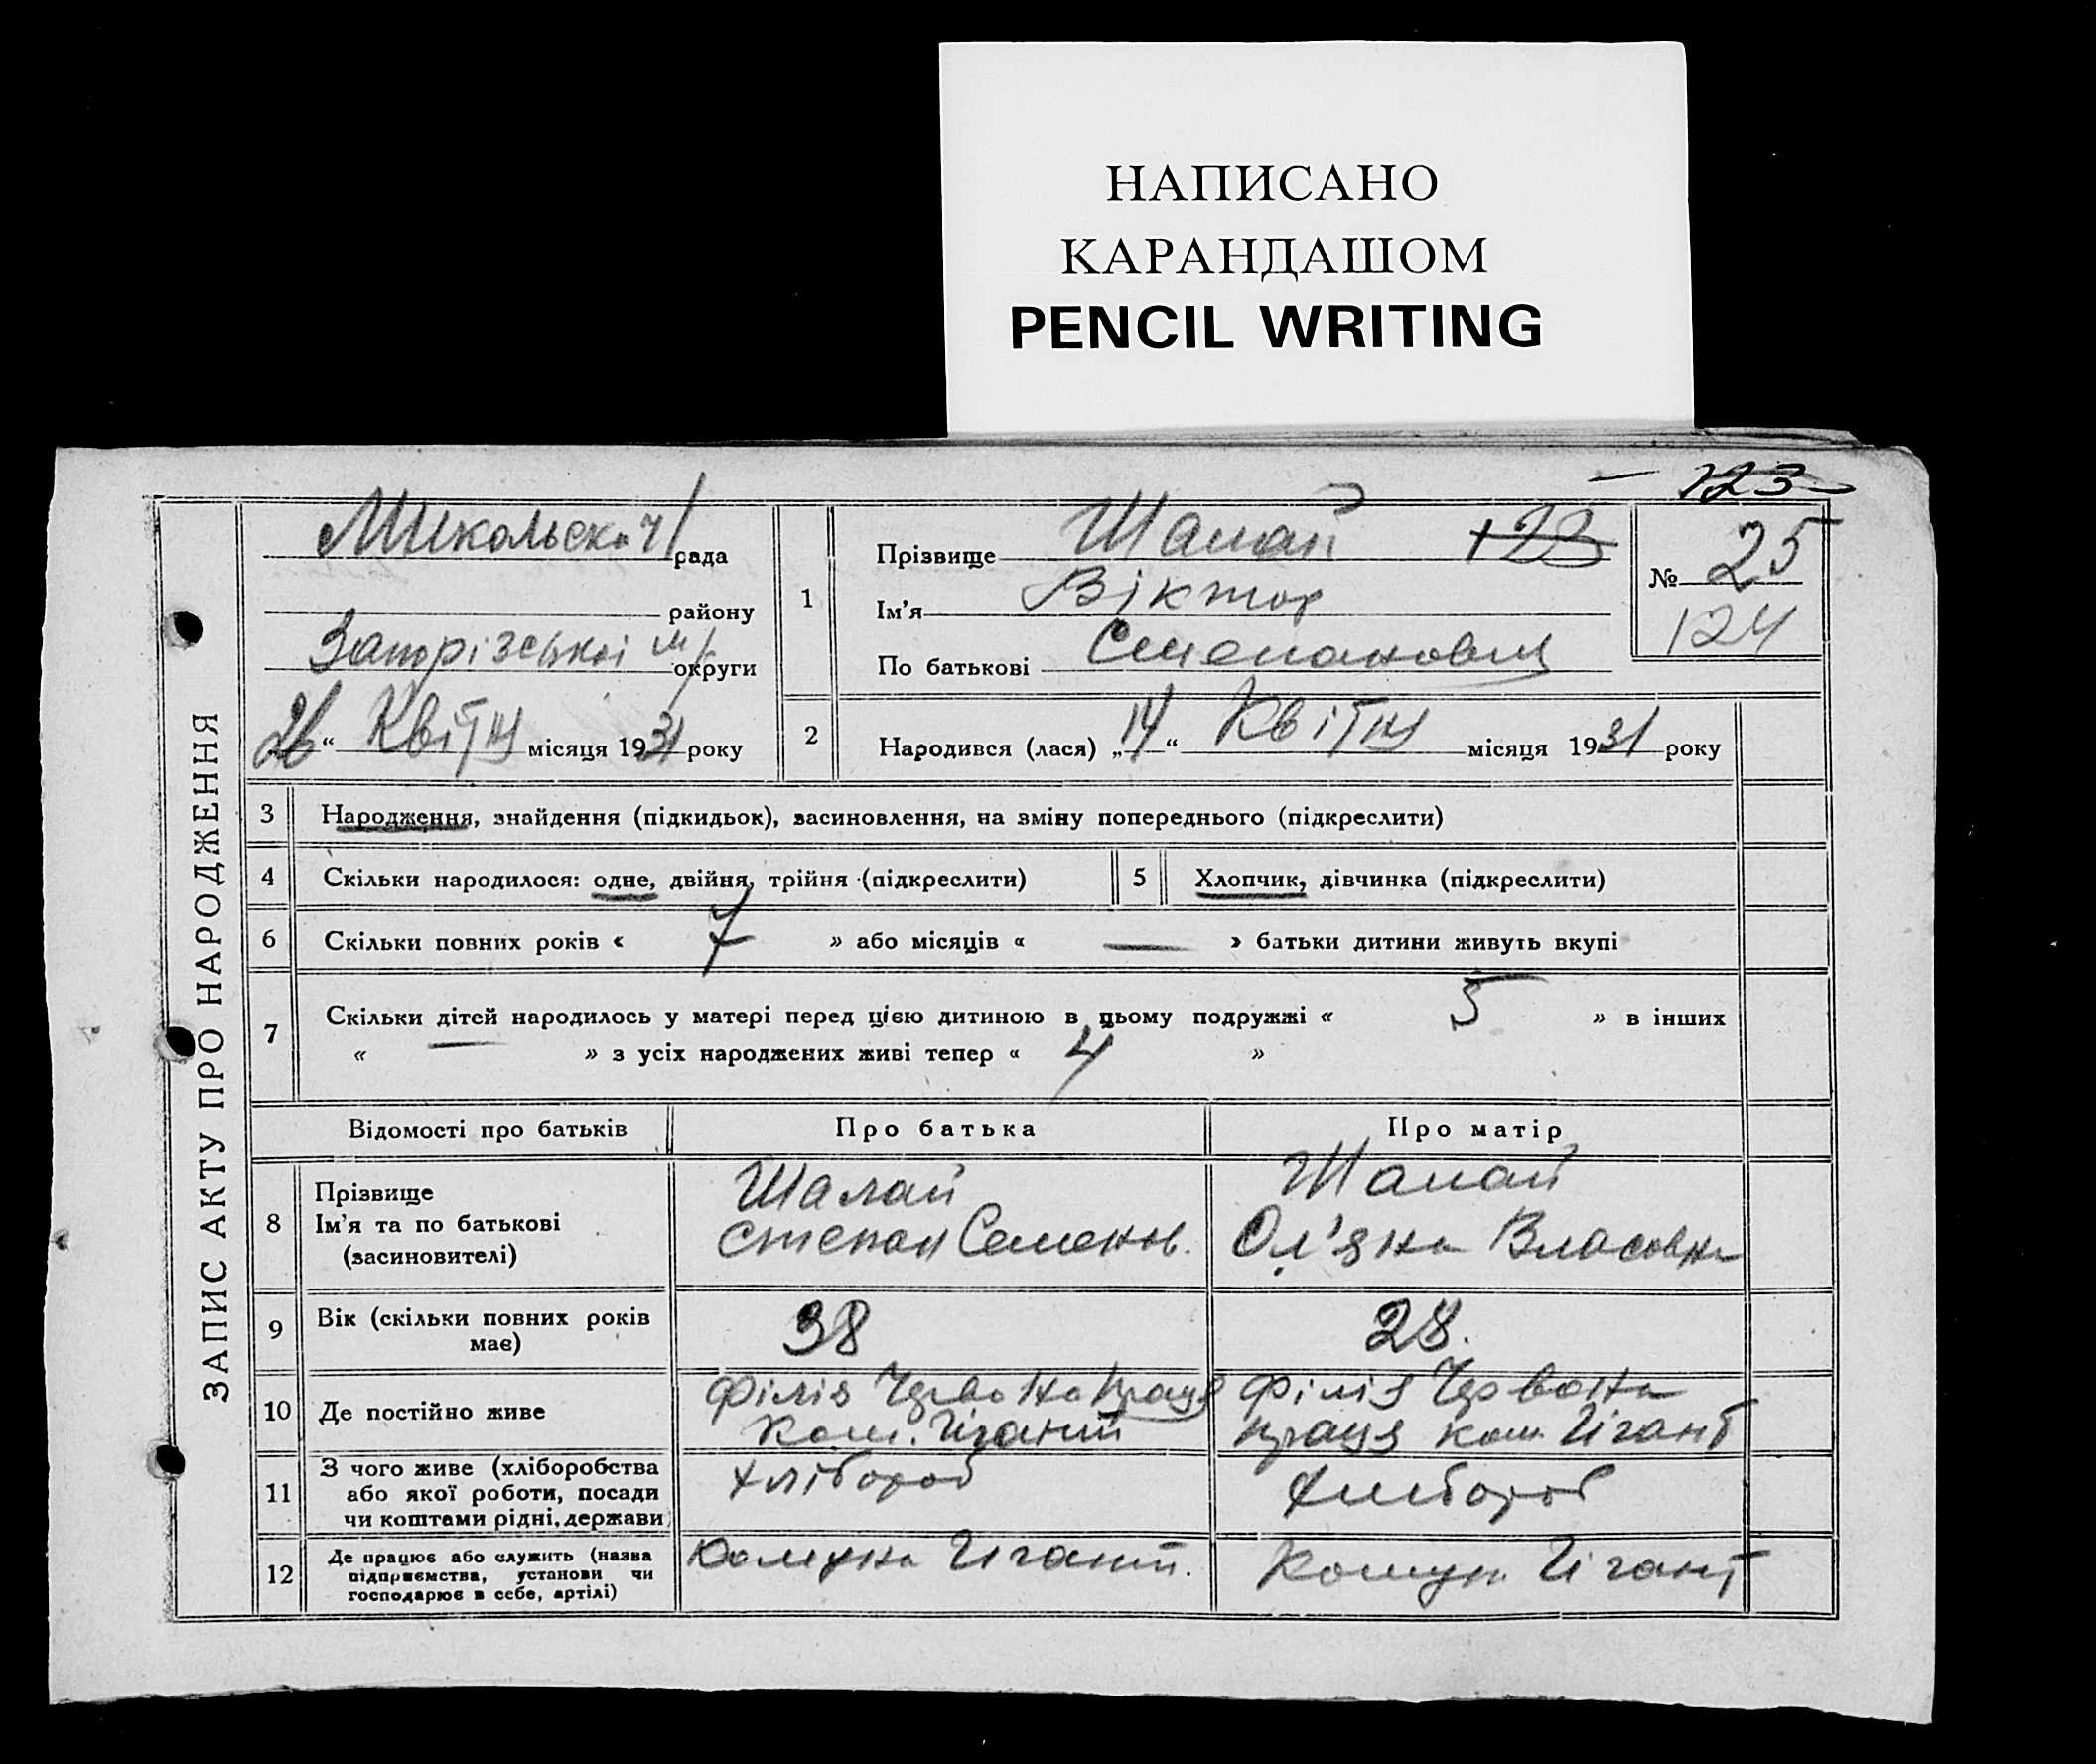 НАПИСАНО
КАРАНДАШОМ
PENCIL WRITING
123
ЗАПИС АКТУ ПРО НАРОДЖЕННЯ
Микольська рада
району
Запорізської м/р округи
26 “ Квітня місяця 1931 року
1
Прізвище Шалай 123
Ім’я Віктор
По батькові Степанович
№ 25
124
2 Народився (лася) „14“ Квітня місяця 1931 року
3 Народження, знайдення (підкидьок), засиновлення, на зміну попереднього (підкреслити)
4 Скільки народилося: одне, двійня, трійня (підкреслити) 5 Хлопчик, дівчинка (підкреслити)
6 Скільки повних років « 7 » або місяців « — » батьки дитини живуть вкупі
7 Скільки дітей народилось у матері перед цією дитиною в цьому подружжі « 5 » в інших
« — » з усіх народжених живі тепер « 4 »
Відомості про батьків Про батька Про матір
8 Прізвище
Ім’я та по батькові
(засиновителі)
Шалай
Степан Семенов.
Шалай
Ол’яна Власовна
9 Вік (скільки повних років
має)
38 28.
10 Де постійно живе
Філія Червона Праця
Ком. Гігант
Філія Червона
праця ком. Гігант
11 З чого живе (хліборобства
або якої роботи, посади
чи коштами рідні, держави
хлібороб
хлибороб
12 Де працює або служить (назва
підприємства, установи чи
господарює в себе, артілі)
Комуна Гігант.
Комун. Гігант